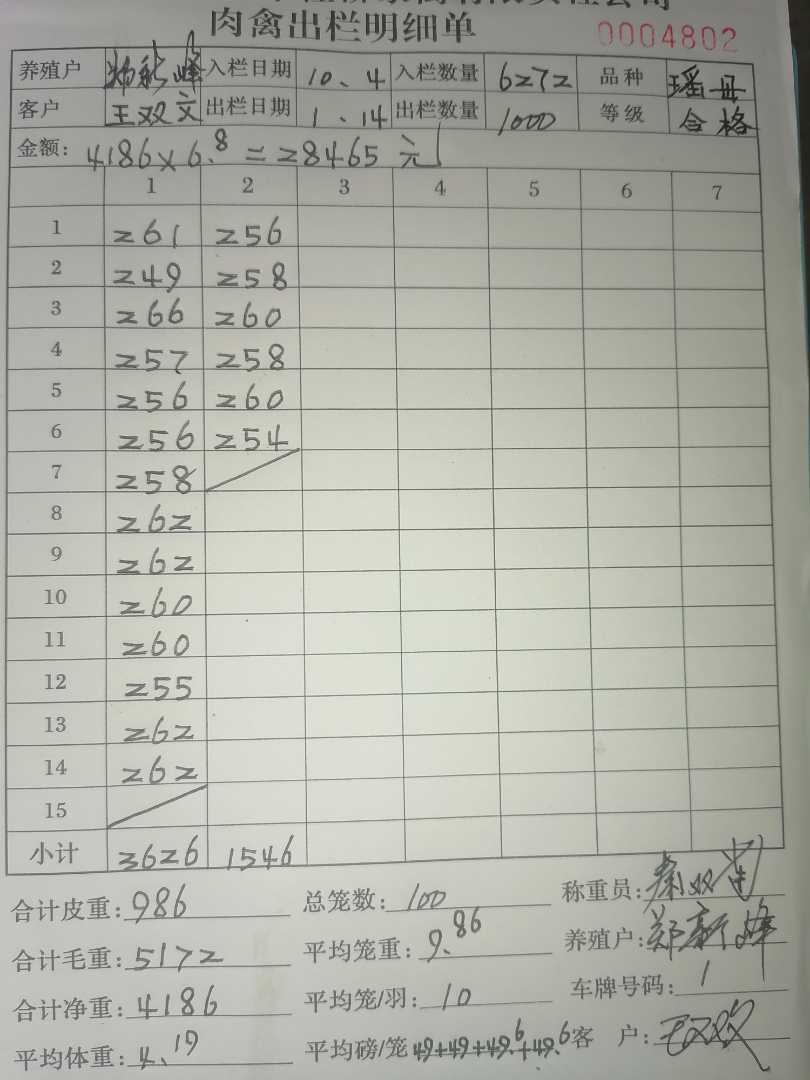 肉禽出栏明细单
0004802
养殖户 入栏日期 10、4 入栏数量 6272 品种 瑶丹
客户 王双文 出栏日期 1、14 出栏数量 1000 等级 合格
金额: 4186×6.8=28465元
1 2 3 4 5 6 7
1 261 256
2 249 258
3 266 260
4 257 258
5 256 260
6 256 254
7 258
8 262
9 262
10 260
11 260
12 255
13 262
14 262
15
小计 3626 1546
合计皮重: 986 总笼数: 100 称重员:
合计毛重: 5172 平均笼重: 9.86 养殖户: 郑新峰
合计净重: 4186 平均笼/羽: 10 车牌号码: 1
平均体重: 4.19 平均磅/笼 49+49+49.6+49.6 客 户: 王双文